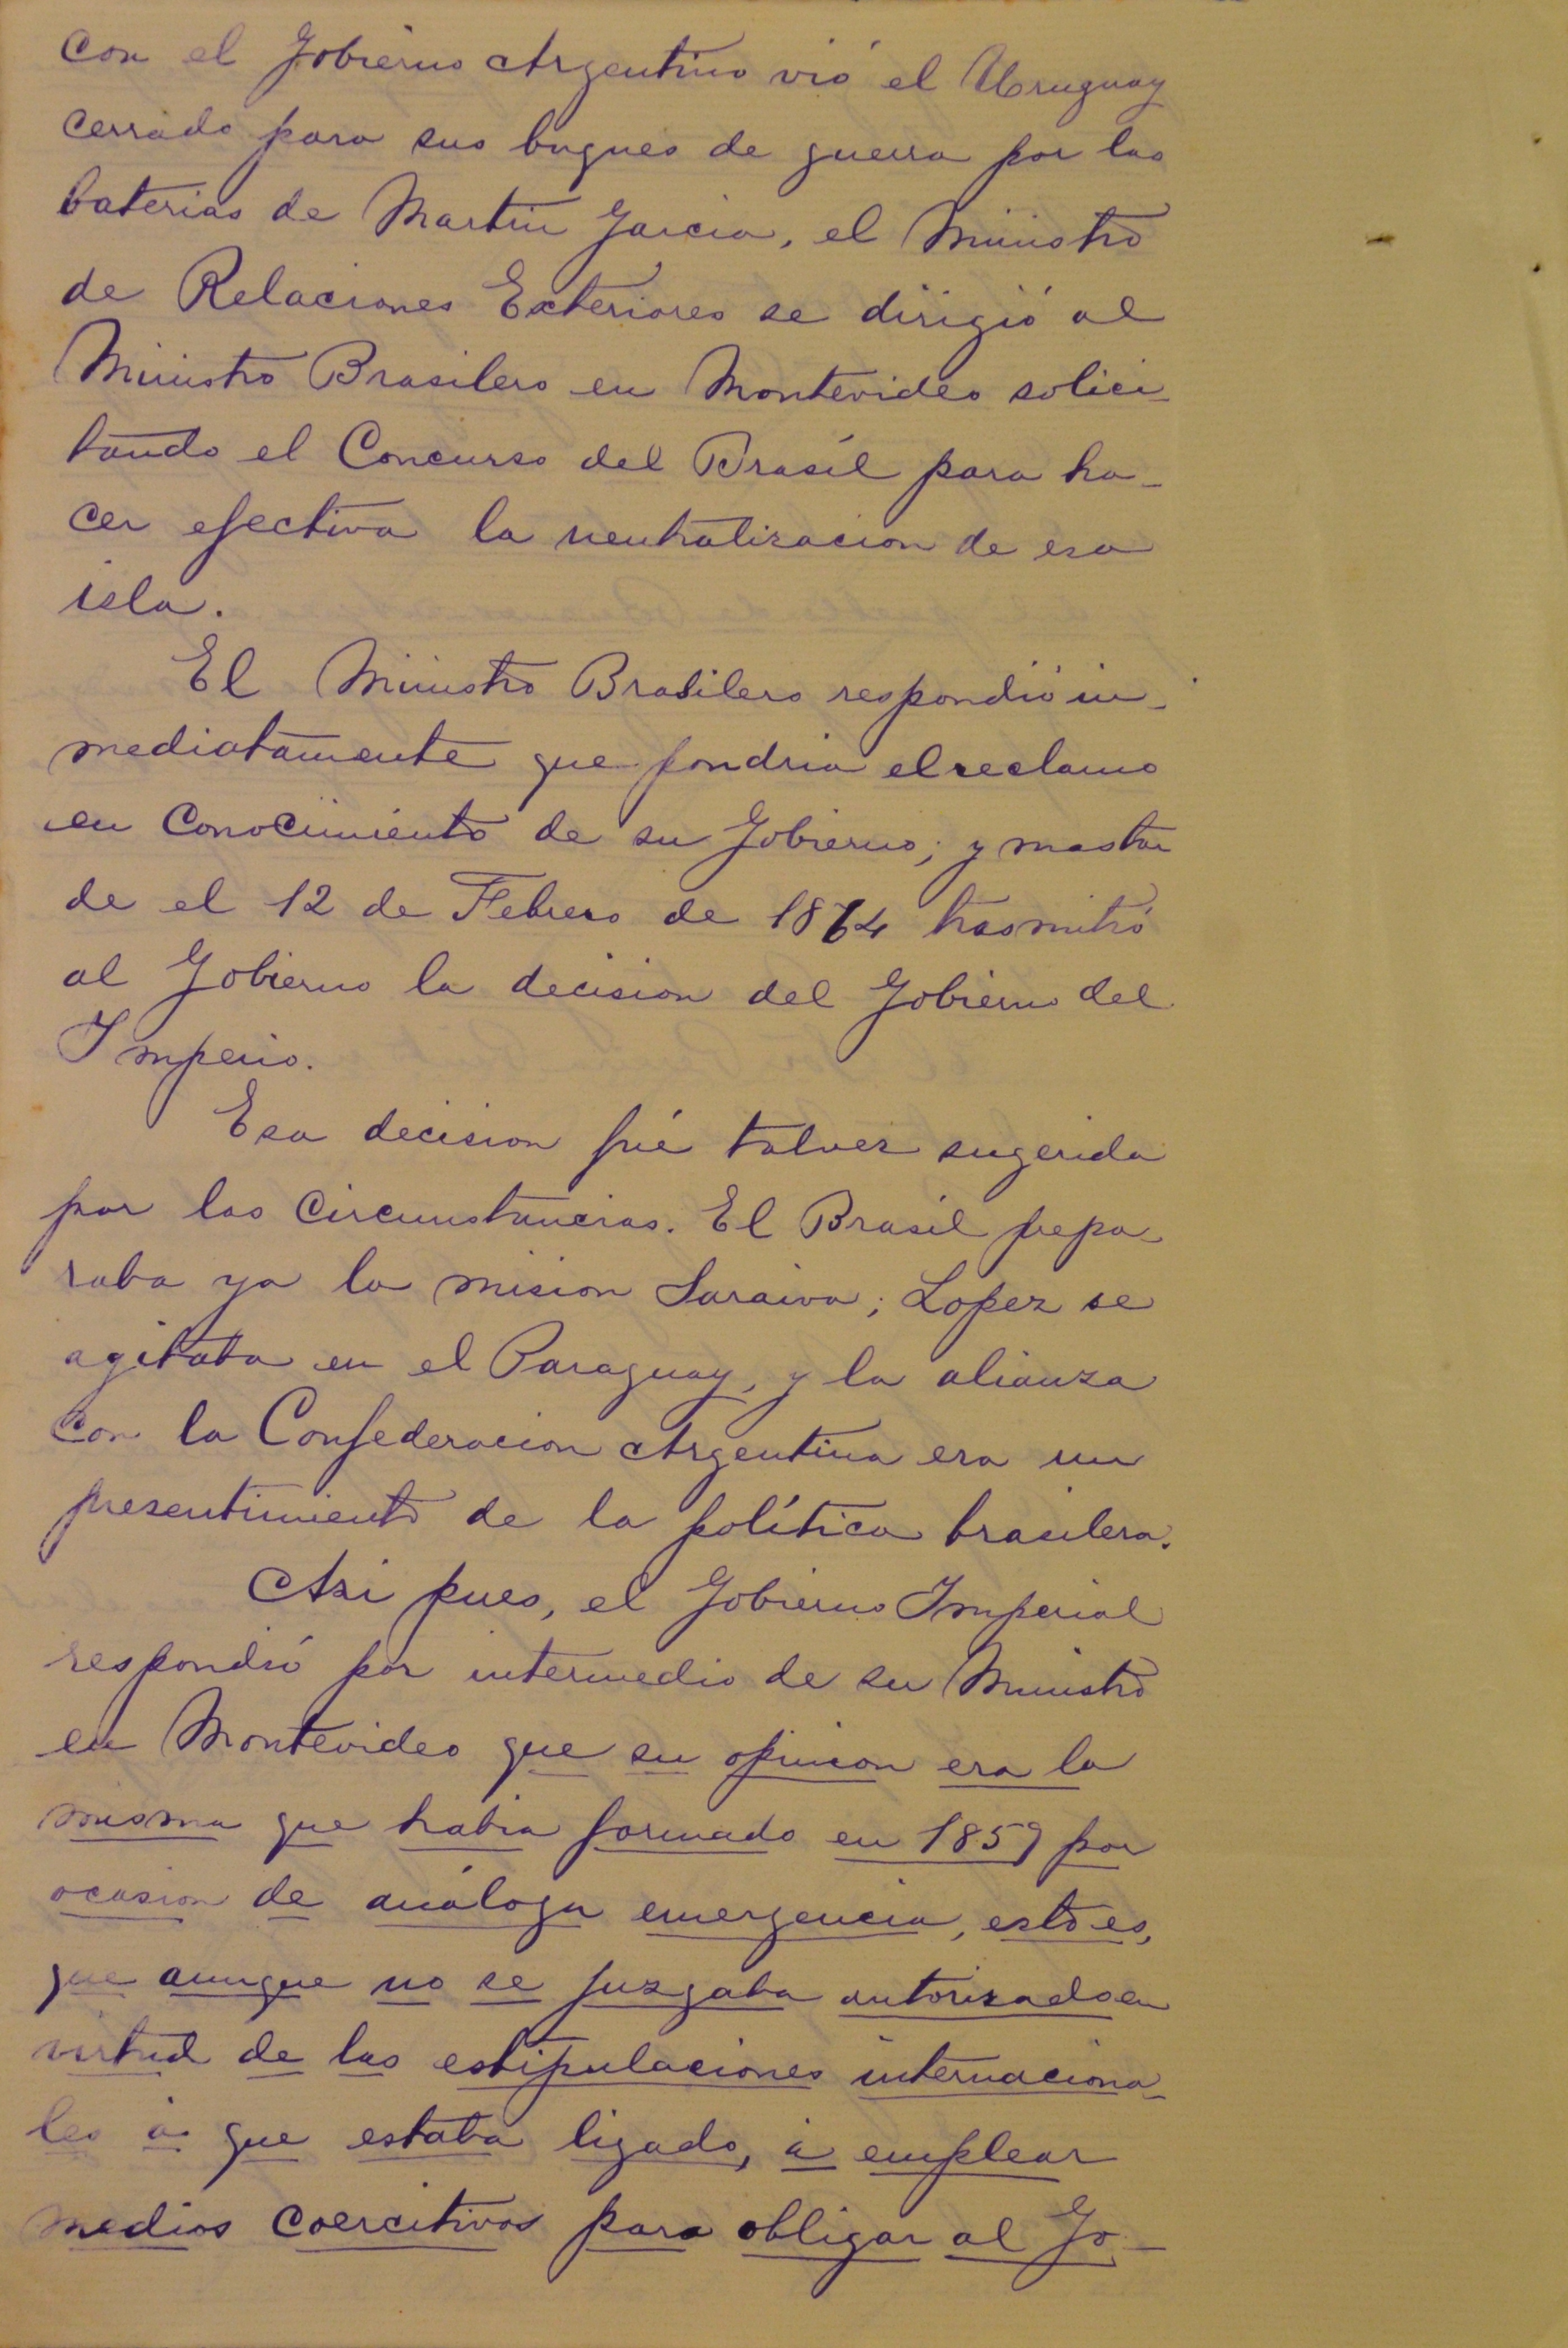 con el Gobierno Argentino vió el Uruguay
cerrado para sus buques de guerra por las
baterias de Martin Garcia, el Ministro
de Relaciones Exteriores se dirigió al
Ministro Brasilero en Montevideo solici-
tando el Concurso del Brasil para ha-
cer efectiva la neutralizacion de esa
isla.
El Ministro Brasilero respondió in-
mediatamente que pondria el reclamo
en conocimiento de su Gobierno; y mastar
de el 12 de Febrero de 1864 trasmitió
al Gobierno la decision del Gobierno del
Imperio.
Esa decision fué talvez sugerida
por las circunstancias. El Brasil prepa-
raba ya la mision Saraiva; Lopez se
agitaba en el Paraguay, y la alianza
con la Confederacion Argentina era un
presentimiento de la política brasilera.
Asi pues, el Gobierno Imperial
respondió por intermedio de su Ministro
en Montevideo que su opinion era la
misma que habia formado en 1859 por
ocasion de análoga emergencia, esto es,
que aunque no se juzgaba autorizado en
virtud de las estipulaciones internaciona-
les á que estaba ligado, á emplear
medios coercitivos para obligar al Go-